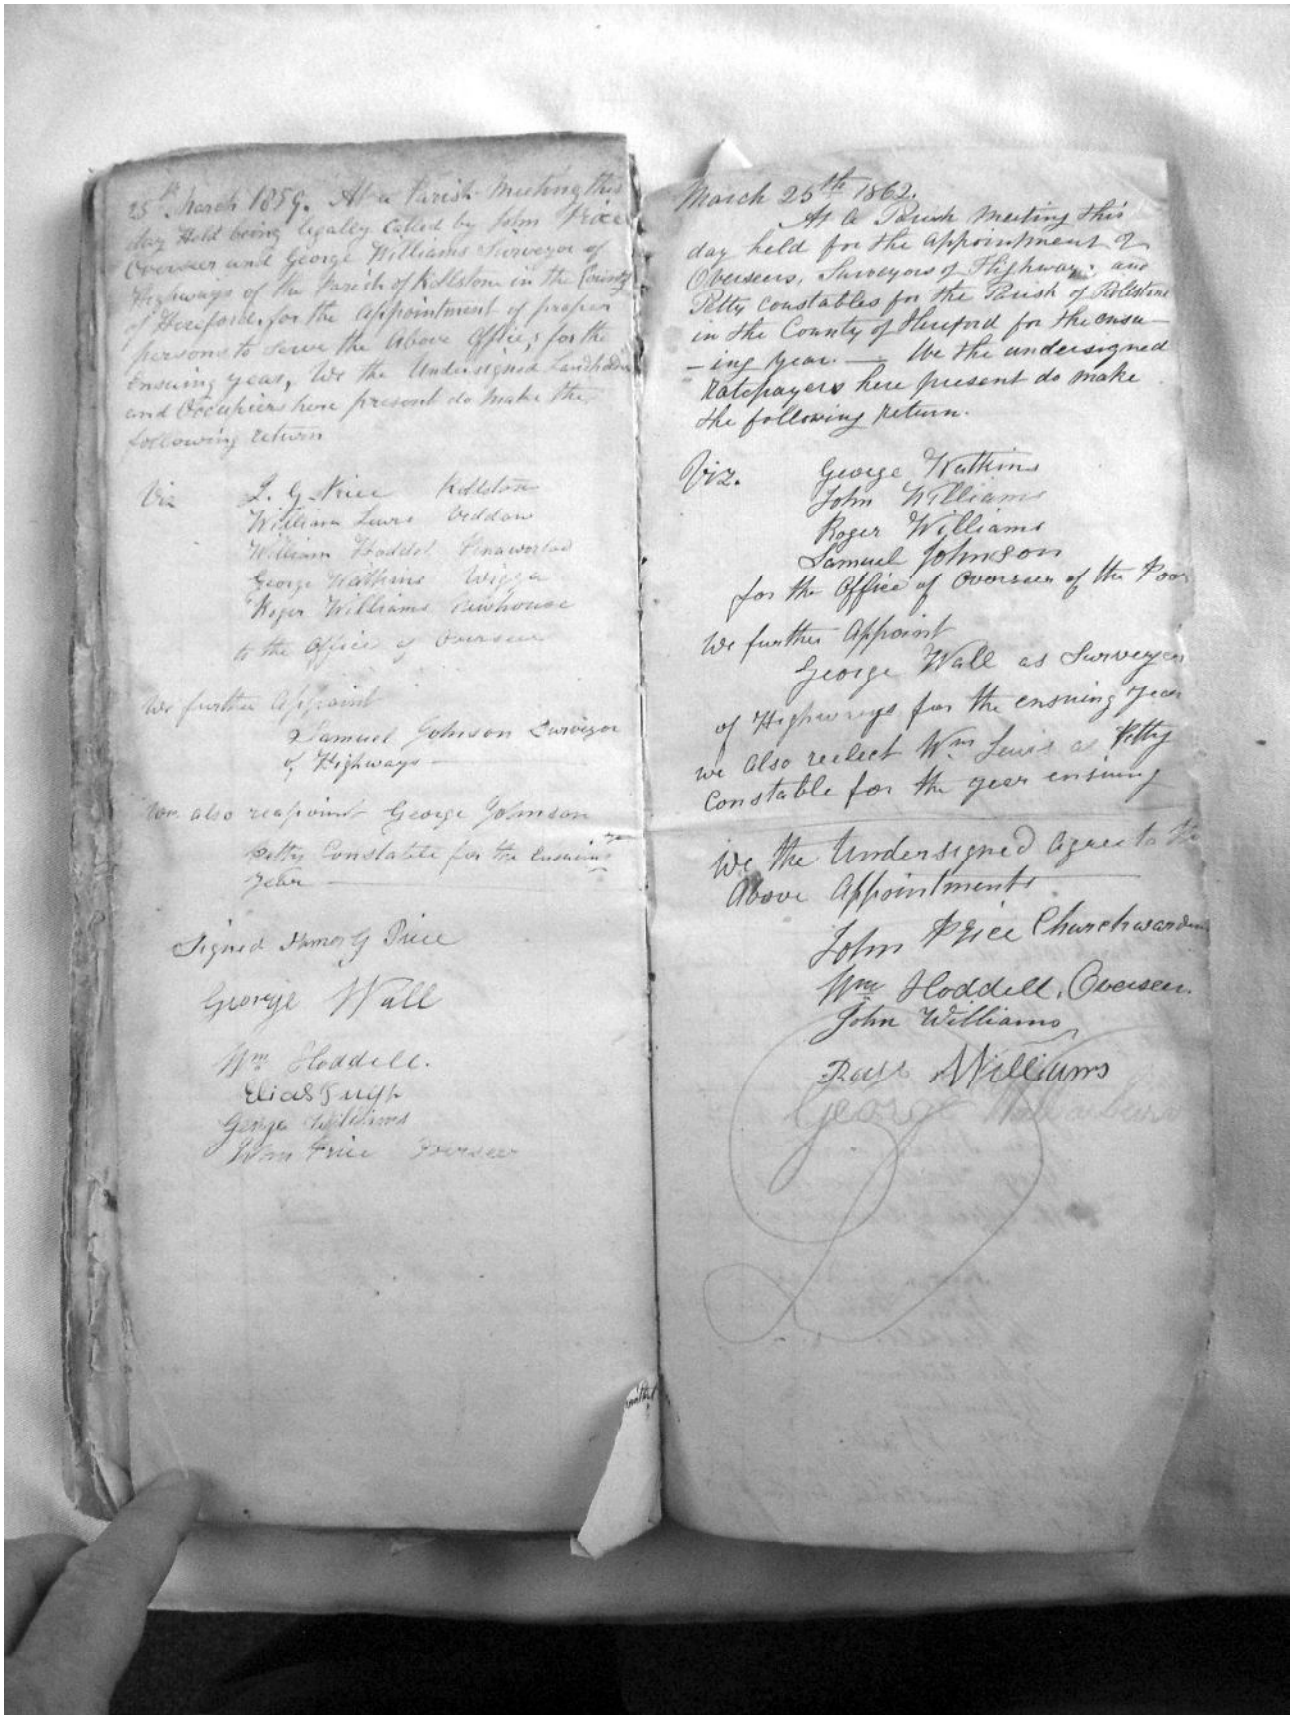 25th March 1859. At a Parish Meeting this
day Held being legally Called by John Price
Overseer and George Williams Surveyor of
Highways of the Parish of Rollstone in the County
of Hereford, for the Appointment of proper
persons to serve the Above Offices for the
Ensuing year, We the Undersigned Landholders
and Occupiers here present do Make the
following return
Viz
G. Price Rollston
William Lewis
William Hoddell
George Watkins Wigga
Roger Williams Newhouse
to the Office of Overseer
We further Appoint
Samuel Johnson Surveyor
of Highways
also reapoint George Johnson
Petty Constable for the Ensuing
year
Signed G Price
George Wall
Wm Hoddell.
Elias Pugh
George Williams
John Price Overseer
March 25th 1862.
At a Parish Meeting this
day held for the appointment of
Overseers, Surveyors of Highways and
Petty Constables for the Parish of Rollstone
in the County of Hereford for the ensu-
-ing year. — We the undersigned
Ratepayers here present do make
the following return.
Viz. George Watkins
John Williams
Roger Williams
Samuel Johnson
for the Office of Overseer of the Poor
We further Appoint
George Wall as Surveyor
of Highways for the ensuing year
we also reelect Wm Lewis as Petty
Constable for the year ensuing
We the Undersigned Agree to the
Above Appointments
John Price Churchwarden
Wm Hoddell, Overseer.
John Williams
Williams
George Wall